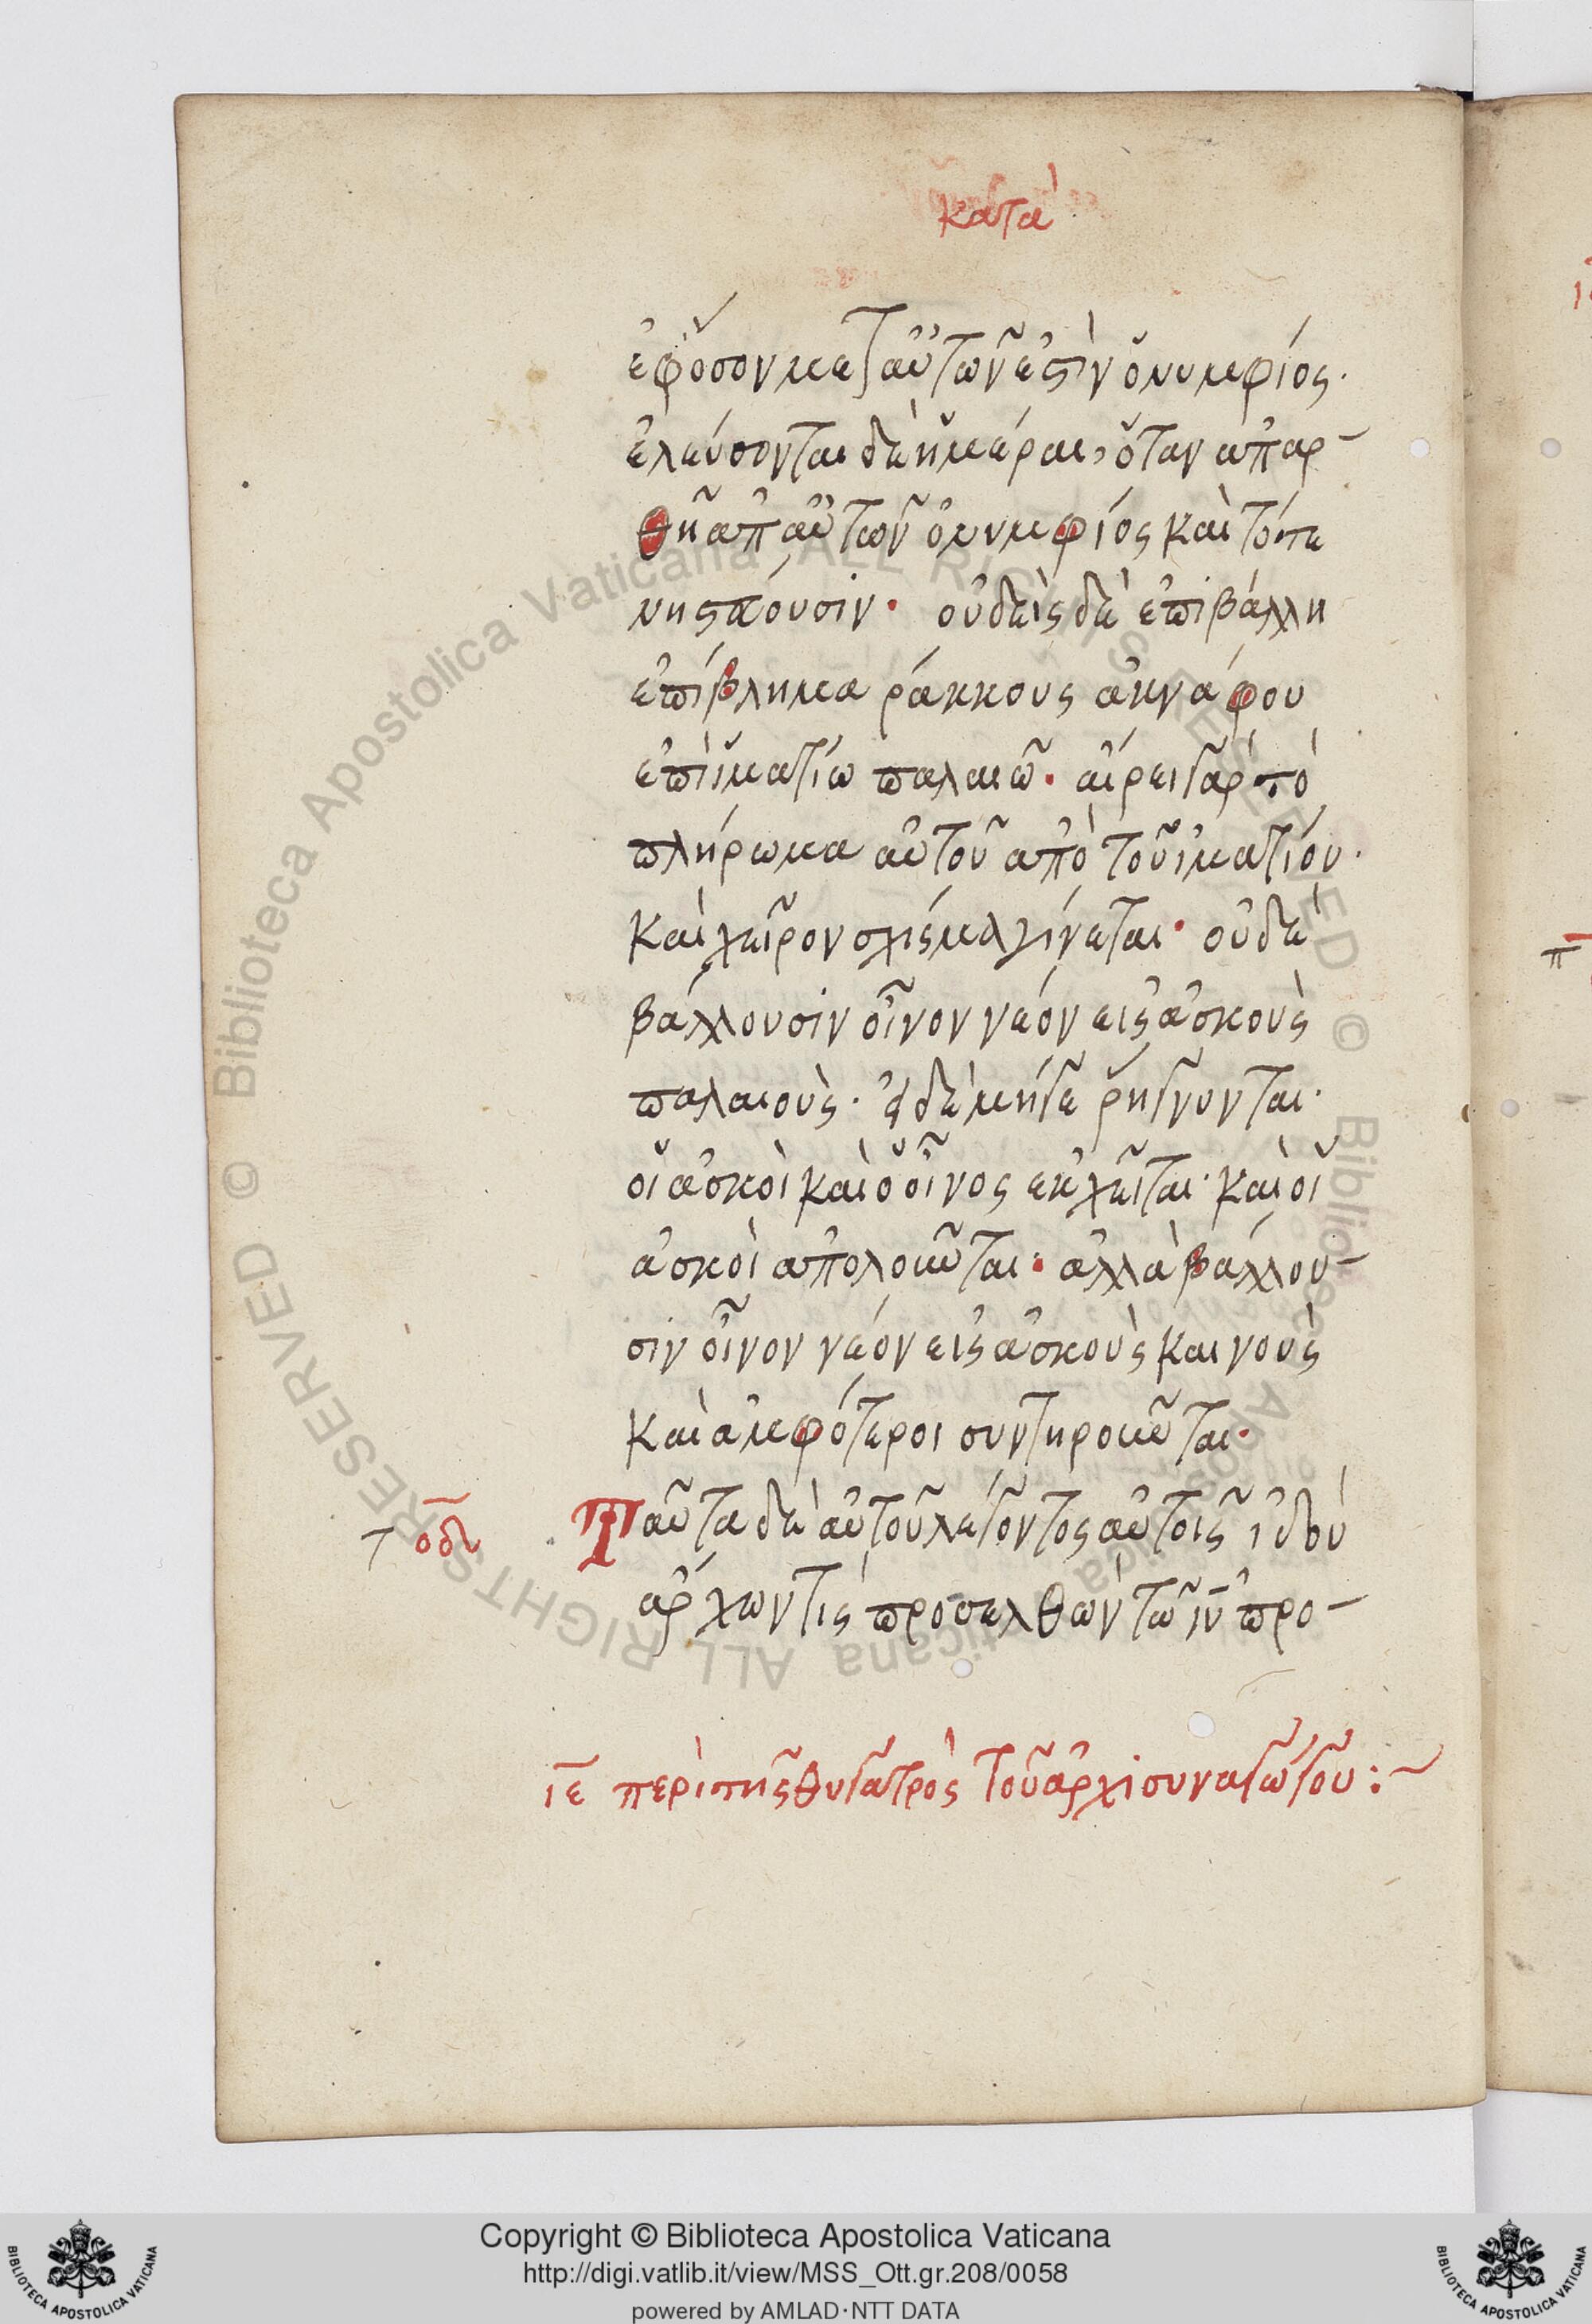 κατὰ
ἐφ' ὅσον μετ αὐτῶν ἐστὶν ὁ νυμφίος.
ἐλεύσονται δὲ ἡμέραι, ὅταν ἀπαρ-
θῆ ἀπ αὐτῶν ὁ νυμφίος καὶ τότε
νηστεύουσιν. οὐδεὶς δὲ ἐπιβάλλη
ἐπίβλημα ράκκους ἀκνάφου
ἐπὶ ἱματίω παλαιῶ. αἴρει γὰρ τὸ
πλήρωμα αὐτοῦ ἀπὸ τοῦ ἱματίου.
καὶ χεῖρον σχίσμα γίνεται. οὐδὲ
βάλλουσιν οἶνον νέον εἰς ἀσκοὺς
παλαιούς. εἰ δὲ μήγε ρήγνυνται.
οἱ ἀσκοὶ καὶ ὁ οἶνος ἐκχεῖται. καὶ οἱ
ἀσκοὶ ἀπολοῦνται. ἀλλὰ βάλλου-
σιν οἶνον νέον εἰς ἀσκοὺς καινοὺς
καὶ ἀμφότεροι συντηροῦνται.
οδ Ταῦτα δὲ αὐτοῦ λέγοντος αὐτοῖς ἰδοὺ
ἄρχων τις προσελθὼν τῶ ιυ προ-
ιε περὶ τῆς θυγατρὸς τοῦ ἀρχισυναγώγου :~
Biblioteca Apostolica Vaticana ALL RIGHTS RESERVED © Biblioteca Apostolica Vaticana ALL RIGHTS RESERVED ©
Copyright © Biblioteca Apostolica Vaticana
http://digi.vatlib.it/view/MSS_Ott.gr.208/0058
powered by AMLAD·NTT DATA
BIBLIOTECA APOSTOLICA VATICANA
BIBLIOTECA APOSTOLICA VATICANA